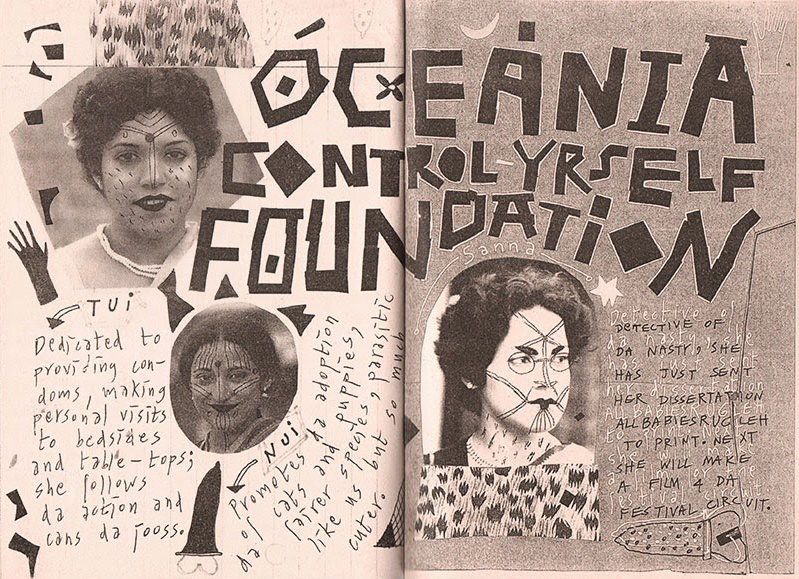 ÓCEÁNIA
CONTROL-YRSELF
FOUNDATION
TUI
Dedicated to
providing con-
doms, making
personal visits
to bedsides
and table-tops;
she follows
da action and
cans da jooss.
NUI
Promotes da adoption
of cats and puppies,
da fairer species, parasitic
like us but so much
cuter.
Sanna
DETECTIVE OF
DA NASTY, SHE
HAS JUST SENT
HER DISSERTATION
ALLBABIESRUGLEH
TO PRINT. NEXT
SHE WILL MAKE
A FILM 4 DA
FESTIVAL CIRCUIT.